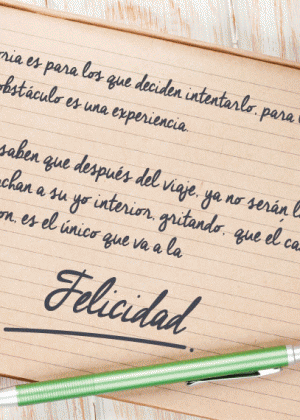 oria es para los que deciden intentarlo, para
obstáculo es una experiencia.
saben que después del viaje, ya no serán l
chan a su yo interior, gritando, que el ca
on, es el único que va a la
Felicidad.